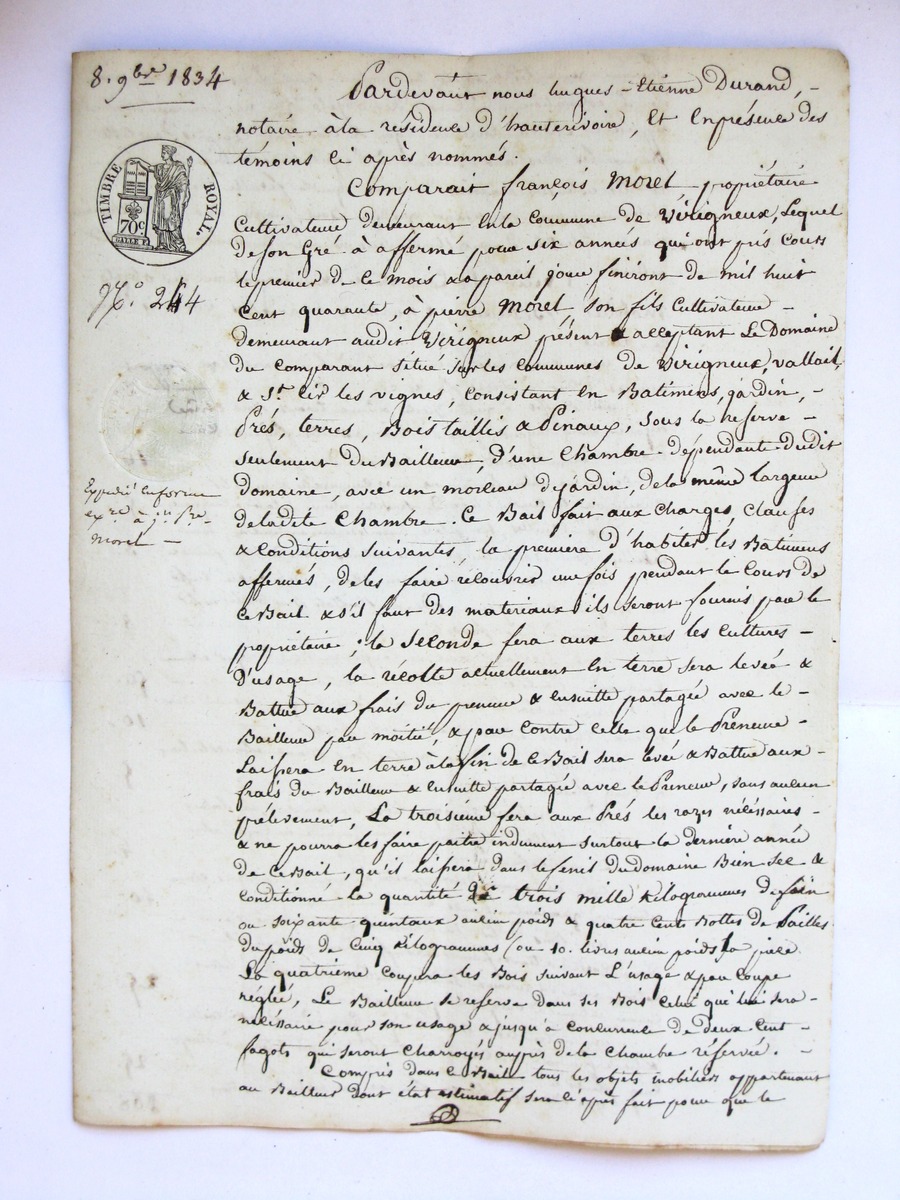 8. 9bre 1834
Pardevant nous hugues-Etienne Durand,
notaire à la résidence d'hauterivoire, Et Enprésence des
témoins ci après nommés.
Comparait françois Morel propriétaire
Cultivateur demeurant En la Commune de Virigneux, Lequel
de son Gré à affermé pour six années qui ont pris Cours
le premier de ce mois & a pareil jour finiront de mil huit
Cent quarante, à pierre Morel son fils Cultivateur
demeurant audit Virigneux présent & acceptant Le Domaine
du comparant situé sur les communes de Virigneux, vallail,
& St. Cir les vignes, Consistant En Batimens, jardin,
Prés, terres, Bois taillis & Pinaux, sous la reserve
seulement du Bailleur, d'une Chambre dépendante dudit
domaine, avec un morceau de jardin, de la même largeur
de la dite Chambre. Ce Bail fait aux Charges, clauses
& conditions suivantes la première d'habiter les Batimens
affermés, de les faire récouvrir une fois pendant le Cours de
ce Bail & s'il faut des materiaux ils seront fournis par le
propriétaire; la seconde fera aux terres les cultures
d'usage, la récolte actuellement En terre sera levéé &
Battue aux frais du preneur & Ensuitte partagéé avec le
Bailleur par moitié, & par Contre celle que le Preneur
Laissera En terre à la fin de ce Bail sera levéé & Battue aux
frais du Bailleur & Ensuitte partagéé avec le Preneur, sans aucun
prélévement, La troisiéme fera aux Prés les razes nécéssaires
& ne pourra les faire paitre indument surtout la dernière année
de ce Bail, qu'il laissera dans le fenil du domaine Bien sec &
Conditionné la quantité de trois mille Kilogrammes de foin
ou soixante quintaux ancien poids & quatre Cent Bottes de Pailles
du poids de Cinq Kilogrammes (ou 10. livres ancien poids) la pièce
La quatriéme Coupera les Bois suivant L'usage & par Coupe
réglée, Le Bailleur se reserve dans ses Bois Celui qui lui sera
nécéssaire pour son usage & jusqu'à concurrence de deux Cent
fagots qui seront Charroyés auprès de la Chambre réservéé.
Compris dans ce Bail tous les objets mobiliers appartenant
au Bailleur dont état estimatif sera ci après fait pour que le
TIMBRE ROYAL.
70c.
No. 244
Expedié En forme
exre à jn
Morel